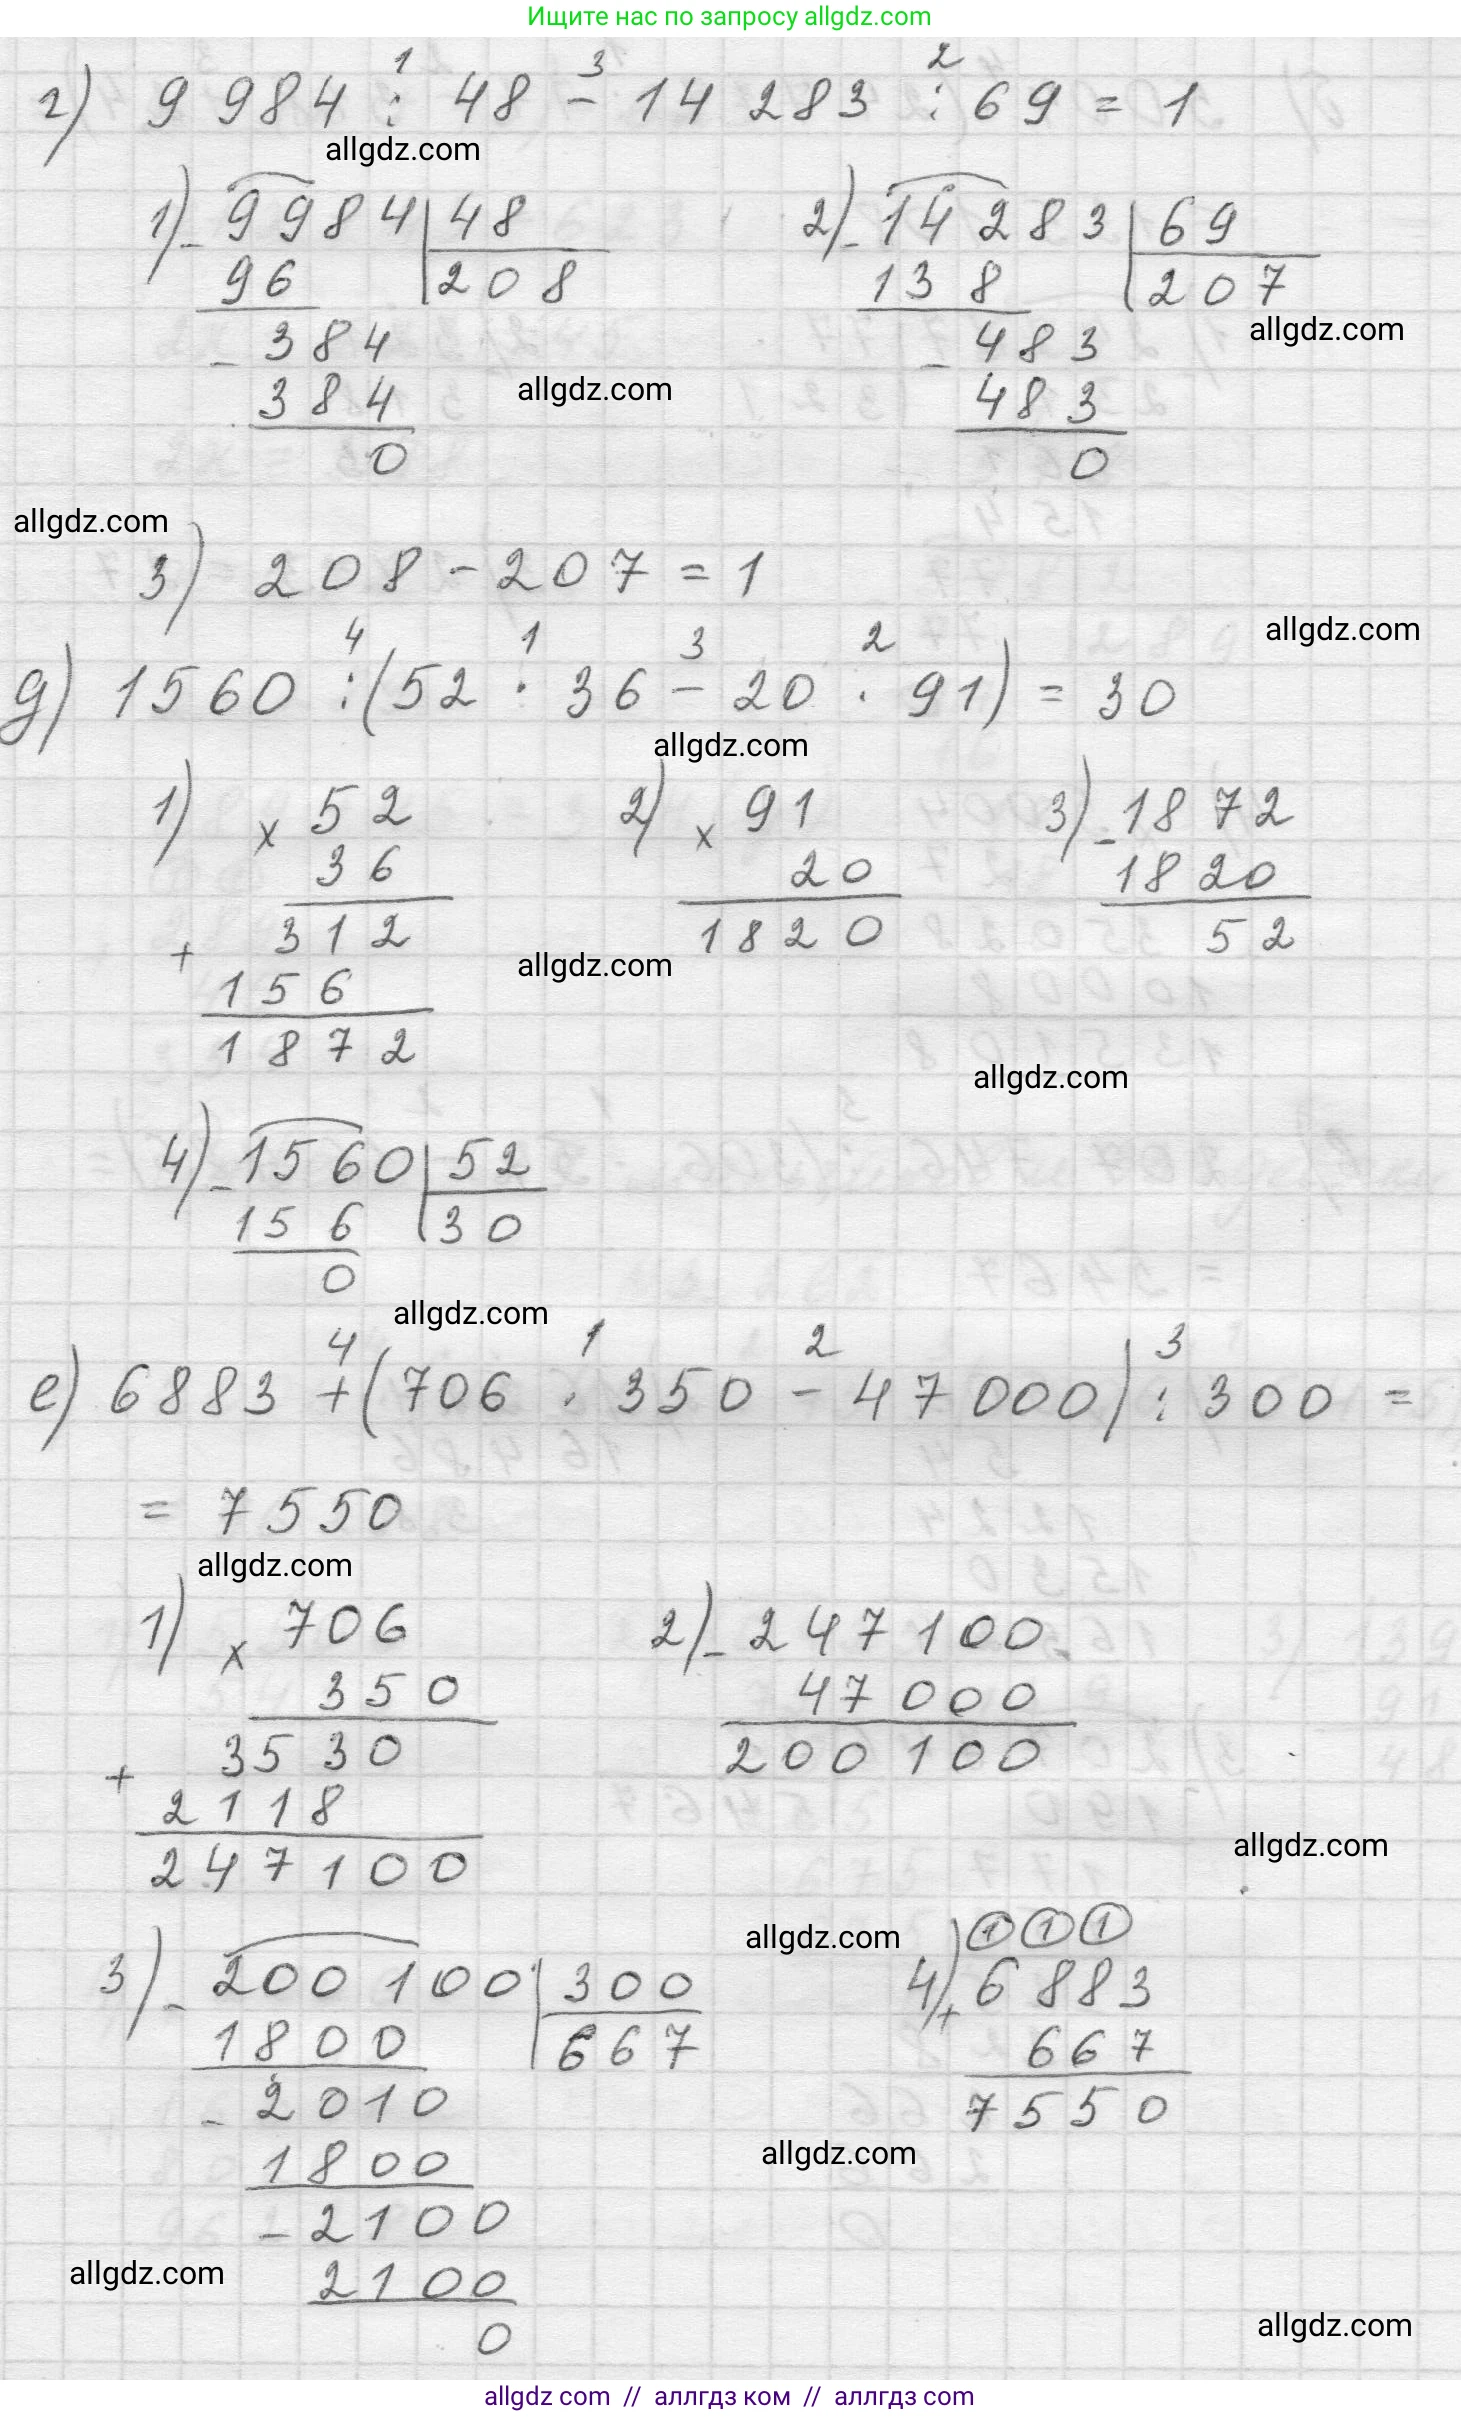 Ищите нас по запросу allgdz.com
г) 9 984 : 48 - 14 283 : 69 = 1
1 3 2
allgdz.com
allgdz.com
1) - 9984 | 48
96 | 208
- 384
384
0
2) - 14283 | 69
138 | 207
- 483
483
0
allgdz.com
allgdz.com
allgdz.com
3) 208 - 207 = 1
allgdz.com
4 1 3 2
д) 1560 : (52 · 36 - 20 · 91) = 30
allgdz.com
1) × 52
36
+ 312
156
1872
2) × 91
20
1820
3) - 1872
1820
52
allgdz.com
allgdz.com
4) - 1560 | 52
156 | 30
0
allgdz.com
4 1 2 3
е) 6883 + (706 · 350 - 47 000) : 300 =
= 7550
allgdz.com
1) × 706
350
+ 3530
2118
247100
2) - 247100
47000
200100
allgdz.com
allgdz.com
3) - 200100 | 300
1800 | 667
- 2010
1800
- 2100
2100
0
1 1 1
4) + 6883
667
7550
allgdz.com
allgdz.com
allgdz.com
allgdz com // аллгдз ком // аллгдз com